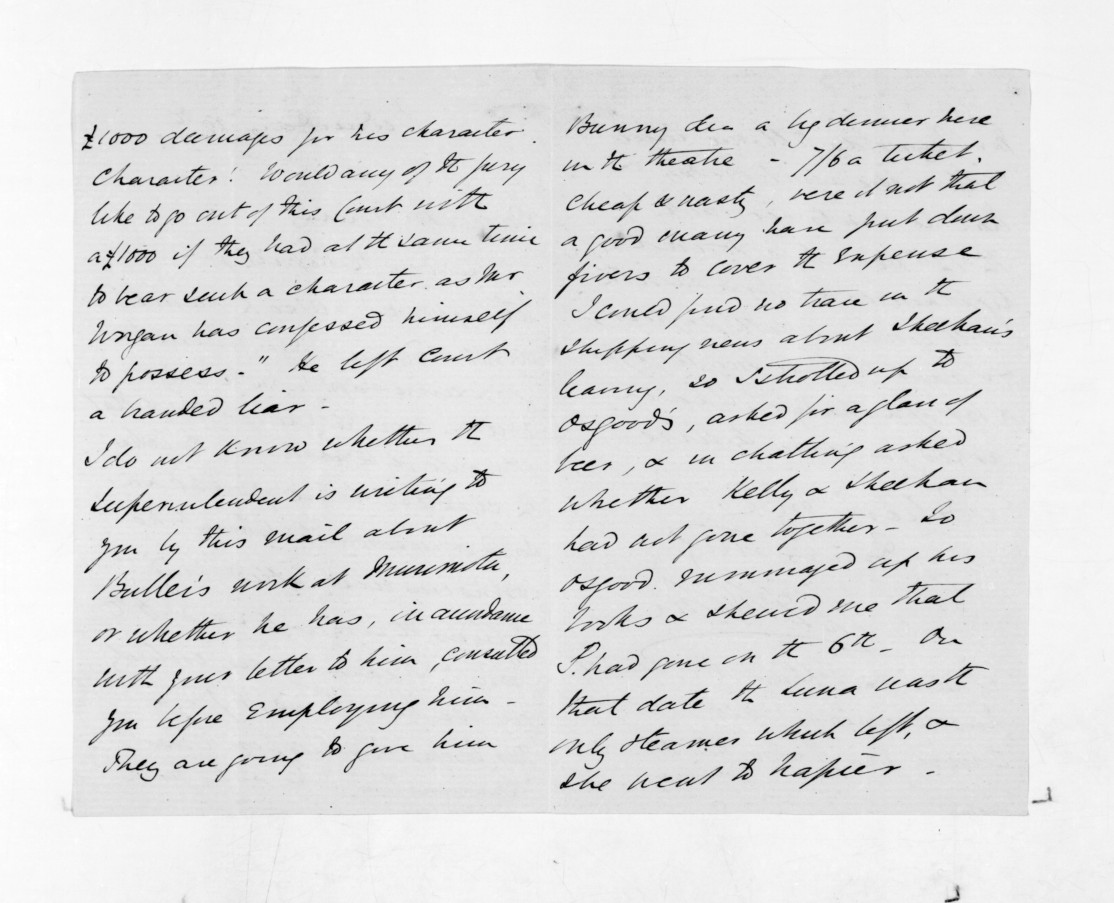 £1000 damages for his character.
Character! Would any of the jury
like to go out of this Court with
a £1000 if they had at the same time
to bear such a character as Mr
Worgan has confessed himself
to possess." He left Court
a branded liar -
I do not know whether the
Superintendent is writing to
you by this mail about
Buller's work at Murimotu,
or whether he has, in accordance
with your letter to him, consulted
you before employing him -
They are going to give him
Bunny a big dinner here
in the theatre - 7/6 a ticket.
cheap & nasty, were it not that
a good many have put down
fivers to cover the expense
I could find no trace in the
shipping news about Sheehan's
leaving, so I strolled up to
Osgood's, asked for a glass of
beer, & in chatting asked
whether Kelly & Sheehan
had not gone together - So
Osgood rummaged up his
books & shewed me that
S. had gone on the 6th - On
that date the Luna was the
only steamer which left, &
she went to Napier -